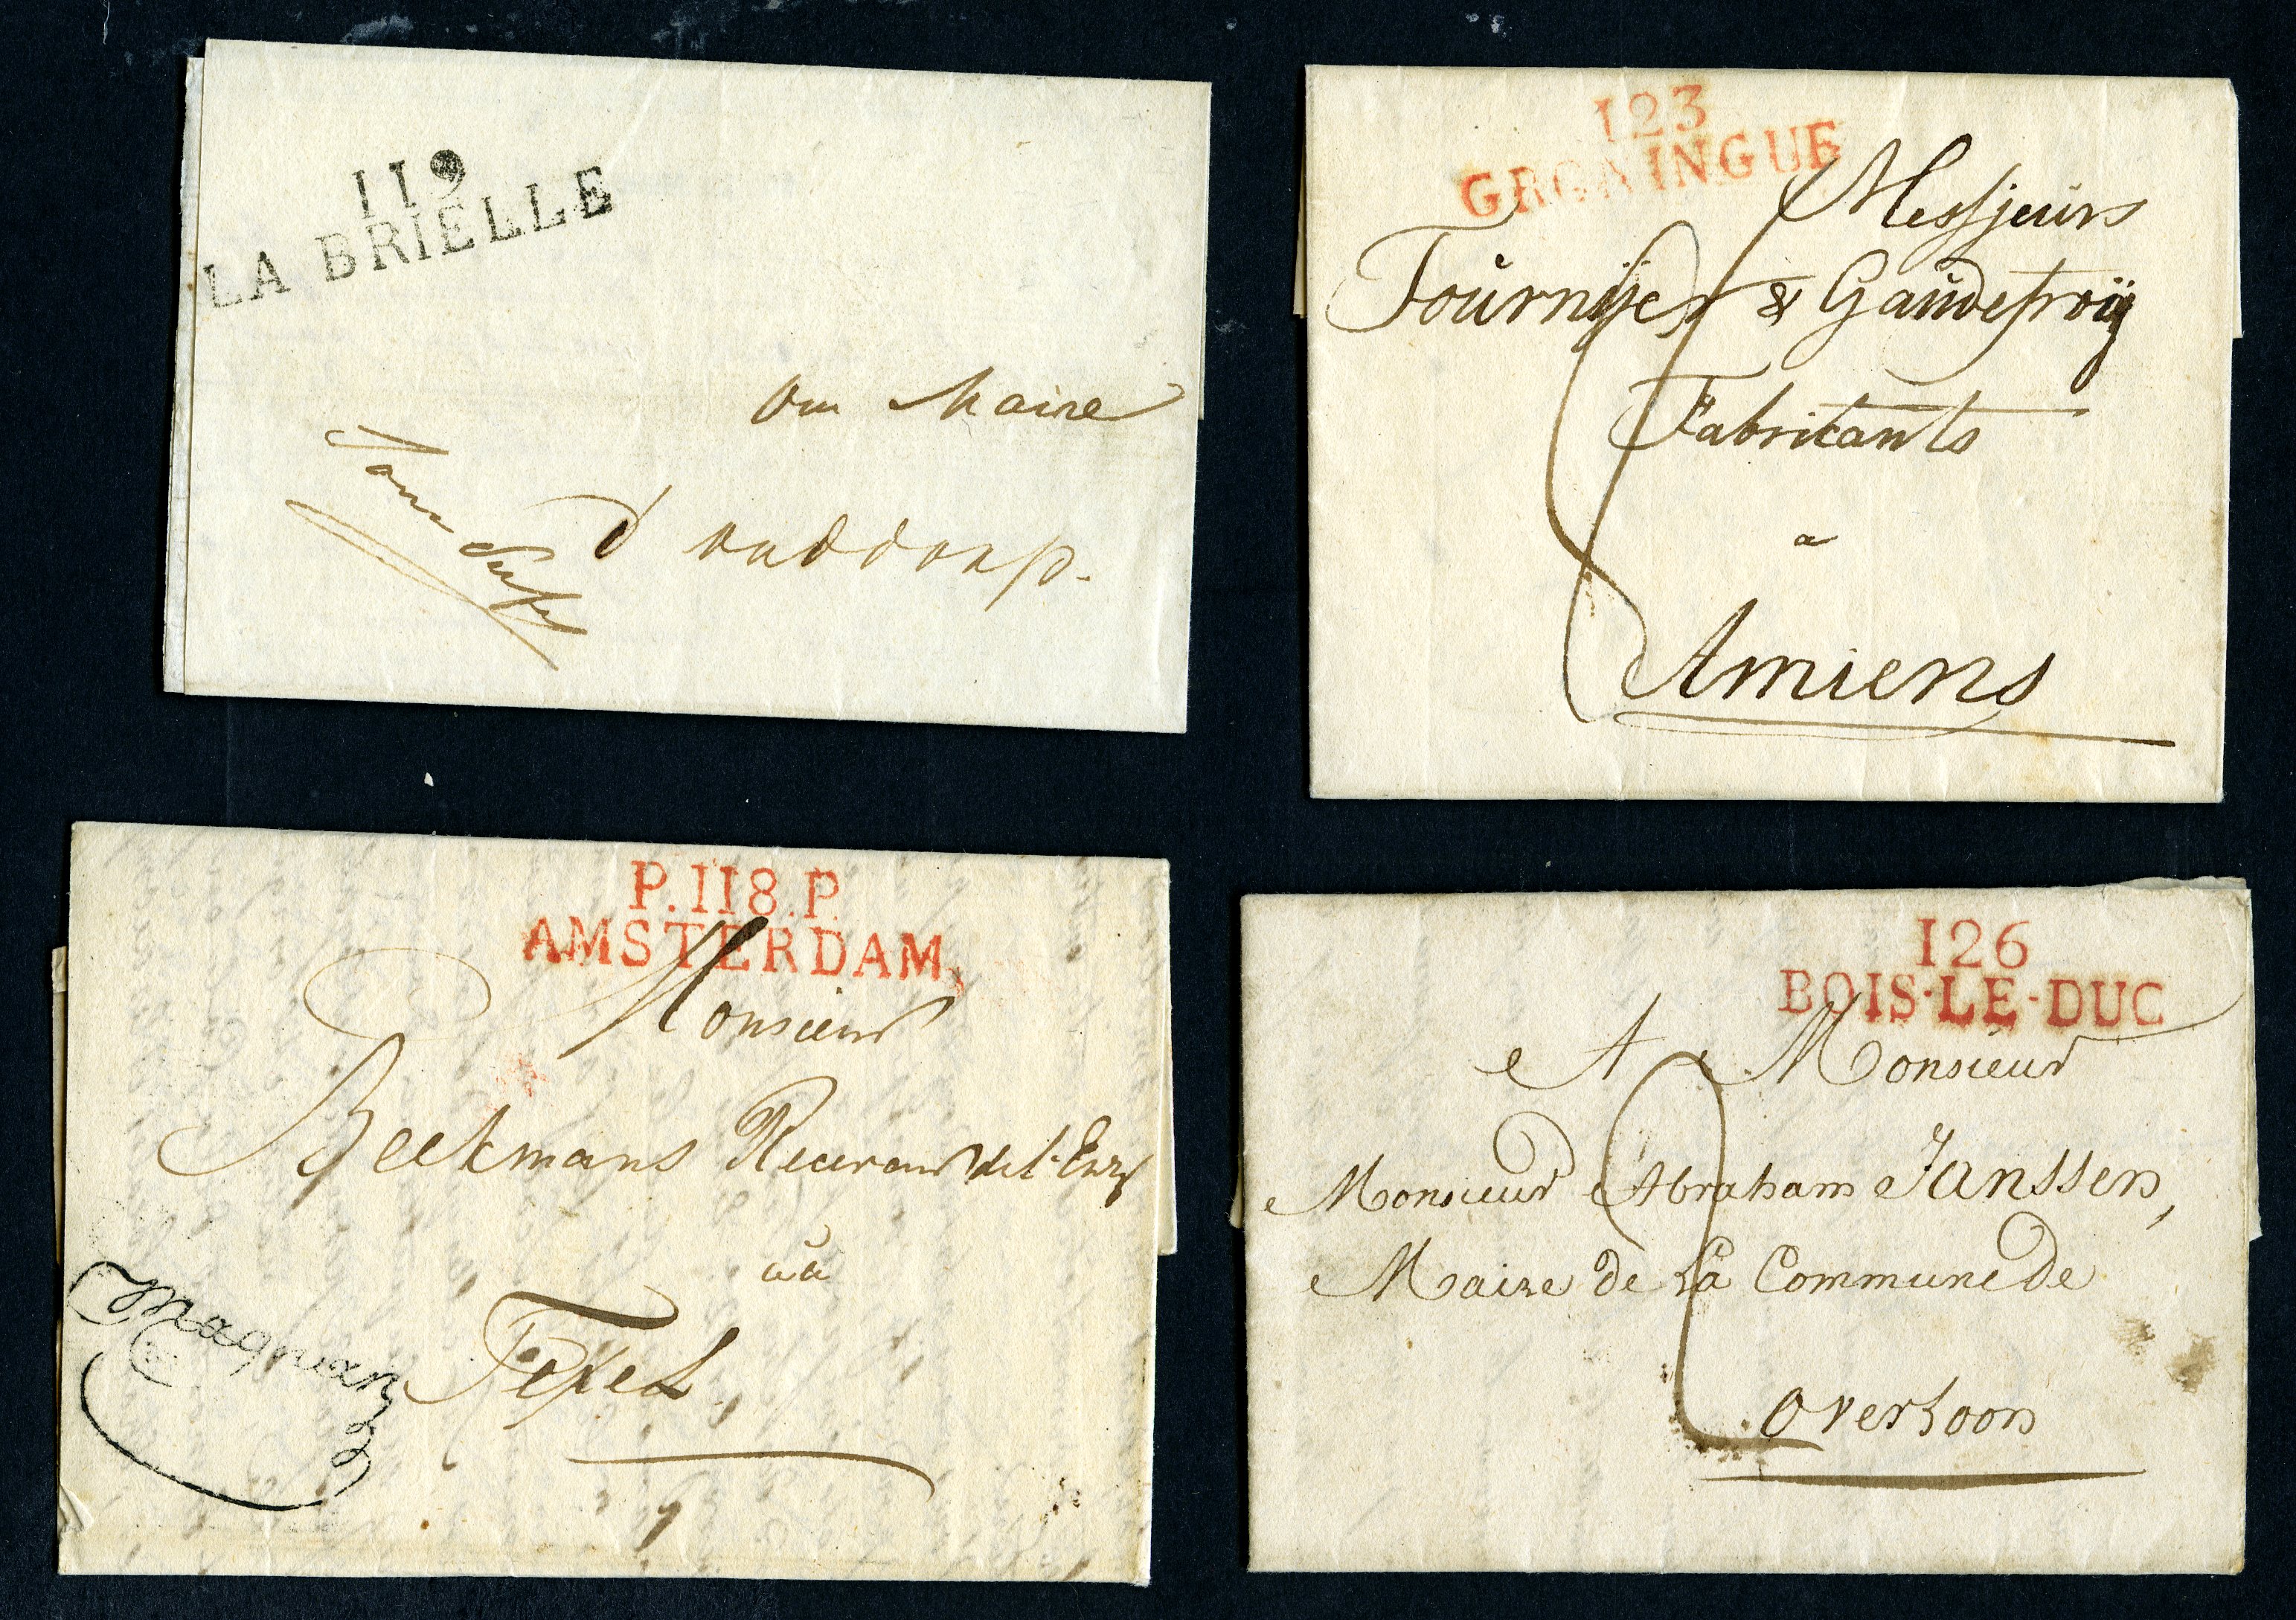 119
LA BRIELLE
au Maire
d ouddorp.
123
GRONINGUE
Messjeurs
Fournÿer & Gaudefroÿ
Fabricants
a
Amiens
P.118.P.
AMSTERDAM
Monsieur
Beekmans Receveur de l'Enrg
aú
Texel
Magnan
126
BOIS-LE-DUC
A Monsieur
Monsieur Abraham Janssen,
Maire de La Commune de
Overloon